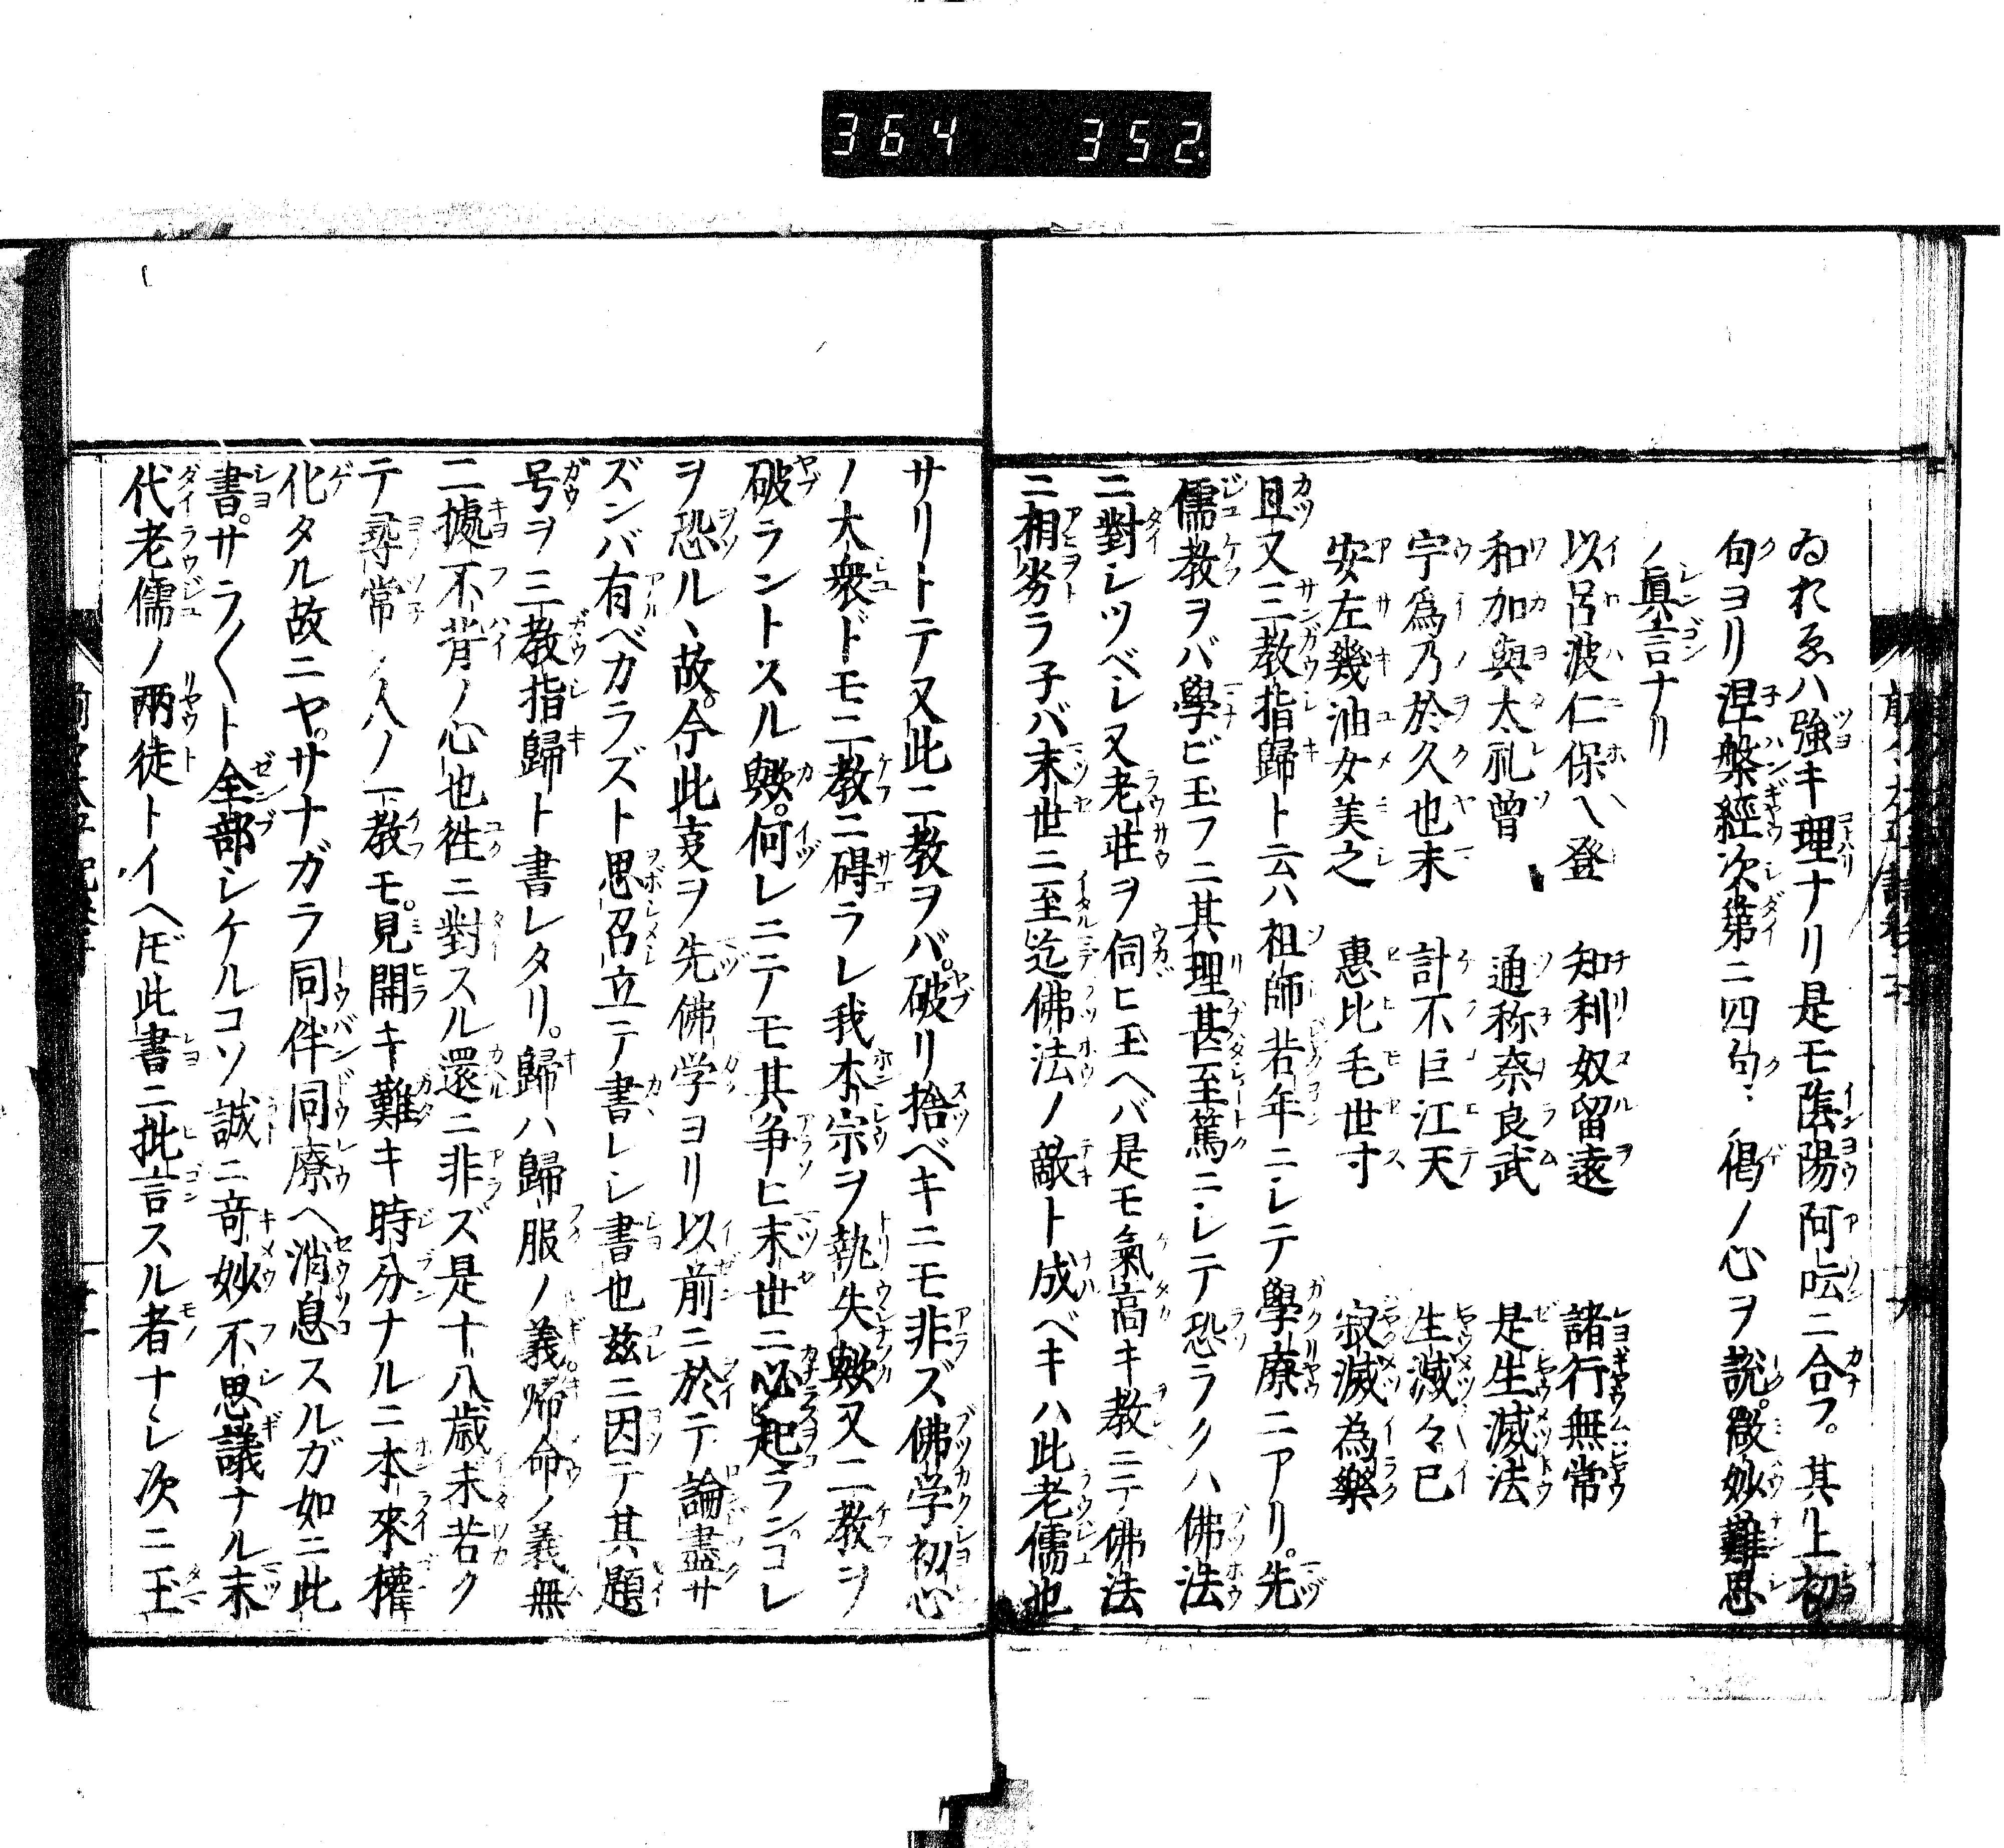 364 352
ゐれゑハ強キ理ナリ是モ陰陽阿吽ニ合フ。其ノ上初
句ヨリ涅槃經次第ニ四句ノ偈ノ心ヲ説。微妙難思
ノ眞言ナリ
以呂波仁保へ登 知利奴留遠 諸行無常
和加與太礼曾 通称奈良武 是生滅法
宇爲乃於久也末 計不巨江天 生滅々已
安左幾油女美之 惠比毛世寸 寂滅為樂
且又三教指歸ト云ハ祖師若年ニシテ學療ニアリ。先
儒教ヲバ學ビ玉フニ其理甚至篤ニシテ恐ラクハ佛法
ニ對シツベシ又老莊ヲ伺ヒ玉ヘバ是モ氣高キ教ニテ佛法
ニ相劣ラ子バ末世ニ至迄佛法ノ敵ト成ベキハ此老儒也
サリトテ又此二教ヲバ。破リ捨ベキニモ非ズ佛学初心
ノ大衆ドモ二教ニ碍ラレ我本宗ヲ執失歟又二教ヲ
破ラントスル歟。何レニテモ其争ヒ末世ニ必起ランコレ
ヲ恐ル、故。今此支ヲ先佛学ヨリ以前ニ於テ論盡サ
ズンバ有ベカラズト思召立テ書レシ書也茲ニ因テ其題
号ヲ三教指歸ト書レタリ。歸ハ歸服ノ義帰命ノ義無
二據不背ノ心也徃ニ對スル還ニ非ズ是十八歳未若ク
テ尋常ノ人ノ一教モ。見開キ難キ時分ナルニ本來權
化タル故ニヤ。サナガラ同伴同療ヘ消息スルガ如ニ此
書。サラ〱ト全部シケルコソ誠ニ竒妙不思議ナル末
代老儒ノ兩徒トイヘ𪜈此書ニ批言スル者ナシ次ニ玉